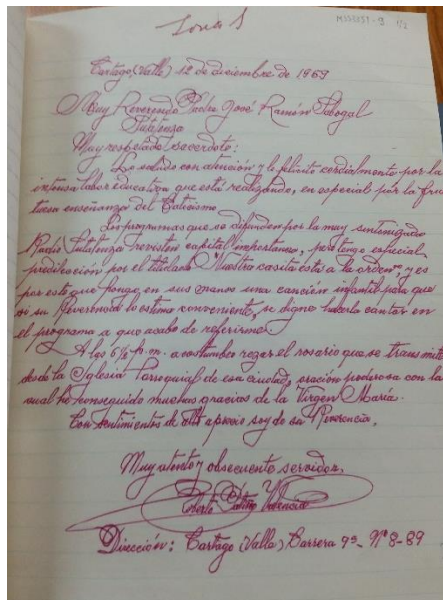 MSS3251-9
Cartago, (Valle) 12 de diciembre de 1969
Muy Reverendo Padre José Ramón Sabogal
Sutatenza
Muy respetado sacerdote:
Lo saludo con atención y le felicito cordialmente por la
intensa labor educativa que está realizando, en especial por la fruc
tuosa enseñanza del Catecismo.
Los programas que se difunden por la muy sintonizada
Radio Sutatenza revisten capital importancia, pero tengo especial
predilección por el titulado "Nuestra casita está a la orden", y es
por esto que pongo en sus manos una canción infantil para que
si su Reverencia lo estima conveniente, se digne hacerla cantar en
el programa a que acabo de referirme.
A las 5½ a.m. acostumbro rezar el rosario que se transmite
desde la Iglesia Parroquial de esa ciudad, oración poderosa con la
cual he conseguido muchas gracias de la Virgen María.
Con sentimientos de alto aprecio soy de su Reverencia,
Muy atento y obsecuente servidor,
Valencia
Dirección: Cartago (Valle) Carrera 9ª- Nº 8-89